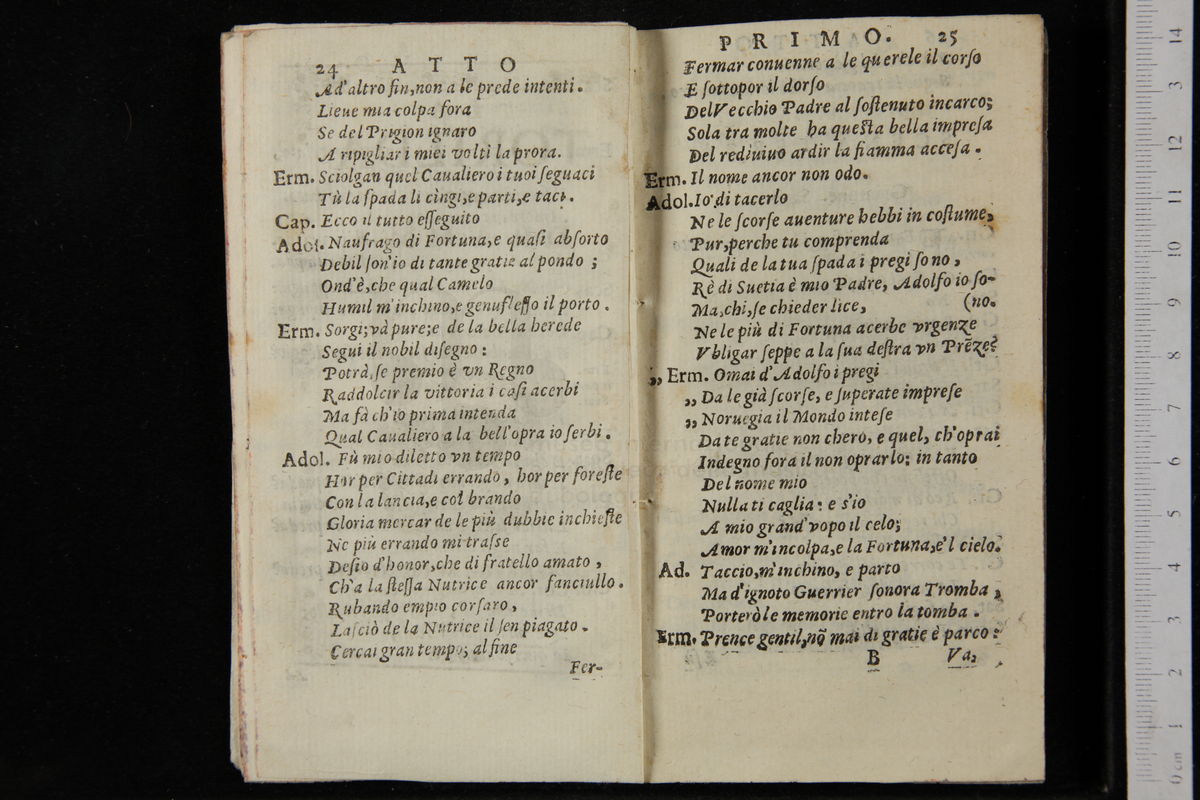 24 ATTO
Ad'altro fin,non a le prede intenti.
Lieue mia colpa fora
Se del Prigion ignaro
A ripigliar i miei volti la prora.
Erm. Sciolgan quel Caualiero i tuoi ſeguaci
Tù la ſpada li cingi,e parti,e taci.
Cap. Ecco il tutto eſſeguito
Adol. Naufrago di Fortuna,e quaſi abſorto
Debil ſon'io di tante gratie al pondo ;
Ond'è,che qual Camelo
Humil m'inchino,e genufleſſo il porto .
Erm. Sorgi;và pure;e de la bella herede
Segui il nobil diſegno :
Potrà,ſe premio è vn Regno
Raddolcir la vittoria i caſi acerbi
Ma fà ch'io prima intenda
Qual Caualiero a la bell'opra io ſerbi .
Adol. Fù mio diletto vn tempo
Hor per Cittadi errando , hor per foreſte
Con la lancia,e col brando
Gloria mercar de le più dubbie inchieſte
Ne più errando mi traſſe
Deſio d'honor,che di fratello amato ,
Ch'a la ſteſſa Nutrice ancor fanciullo .
Rubando empio corſaro ,
Laſciò de la Nutrice il ſen piagato .
Cercai gran tempo; al fine
Fer-
PRIMO. 25
Fermar conuenne a le querele il corſo
E ſottopor il dorſo
Del Vecchio Padre al ſoſtenuto incarco;
Sola tra molte ha queſta bella impreſa
Del rediuiuo ardir la fiamma acceſa .
Erm. Il nome ancor non odo.
Adol. Io di tacerlo
Ne le ſcorſe auenture hebbi in coſtume,
Pur,perche tu comprenda
Quali de la tua ſpada i pregi ſono ,
Rè di Suetia è mio Padre, Adolfo io ſo-
Ma,chi,ſe chieder lice, (no.
Ne le più di Fortuna acerbe vrgenze
Vbligar ſeppe a la ſua deſtra vn Prẽze?
„ Erm. Omai d'Adolfo i pregi
„ Da le già ſcorſe, e ſuperate impreſe
„ Noruegia il Mondo inteſe
Da te gratie non chero, e quel, ch'oprai
Indegno fora il non oprarlo; in tanto
Del nome mio
Nulla ti caglia : e s'io
A mio grand'vopo il celo;
Amor m'incolpa,e la Fortuna,e'l cielo.
Ad. Taccio,m'inchino, e parto
Ma d'ignoto Guerrier ſonora Tromba ,
Porterò le memorie entro la tomba .
Erm. Prence gentil,nõ mai di gratie è parco :
B Va,